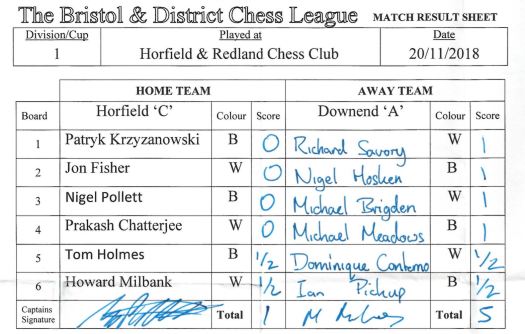 The Bristol & District Chess League MATCH RESULT SHEET
Division/Cup Played at Date
1 Horfield & Redland Chess Club 20/11/2018
HOME TEAM AWAY TEAM
Board Horfield ‘C’ Colour Score Downend ‘A’ Colour Score
1 Patryk Krzyzanowski B 0 Richard Savory W 1
2 Jon Fisher W 0 Nigel Hosken B 1
3 Nigel Pollett B 0 Michael Brigden W 1
4 Prakash Chatterjee W 0 Michael Meadows B 1
5 Tom Holmes B 1/2 Dominique Conterno W 1/2
6 Howard Milbank W 1/2 Ian Pickup B 1/2
Captains Signature Total 1 Total 5